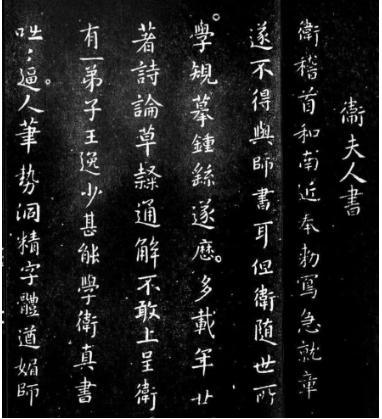 衛夫人書
衛稽首和南近奉勅寫急就章
遂不得與師書耳但衛隨世所
學規摹鍾繇遂歷多載年廿
著詩論草隸通解不敢上呈衛
有一弟子王逸少甚能學衛真書
咄〻逼人筆勢洞精字體遒媚師